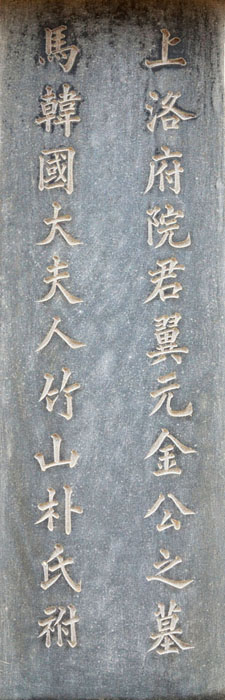 上洛府院君翼元金公之墓
馬韓國大夫人竹山朴氏祔